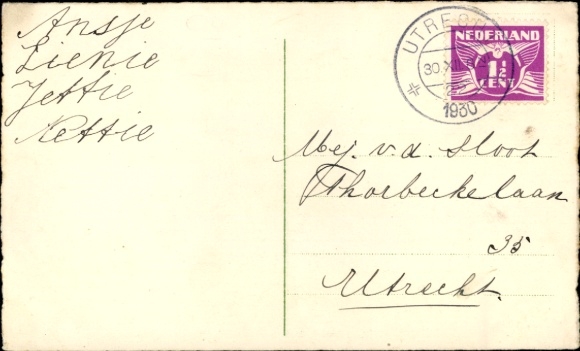 Ansje
Lienie
Jettie
Nettie
UTRECHT
30.XII
1930
NEDERLAND
1½
CENT
Mej. v.d. Sloot
Thorbeckelaan
35
Utrecht.